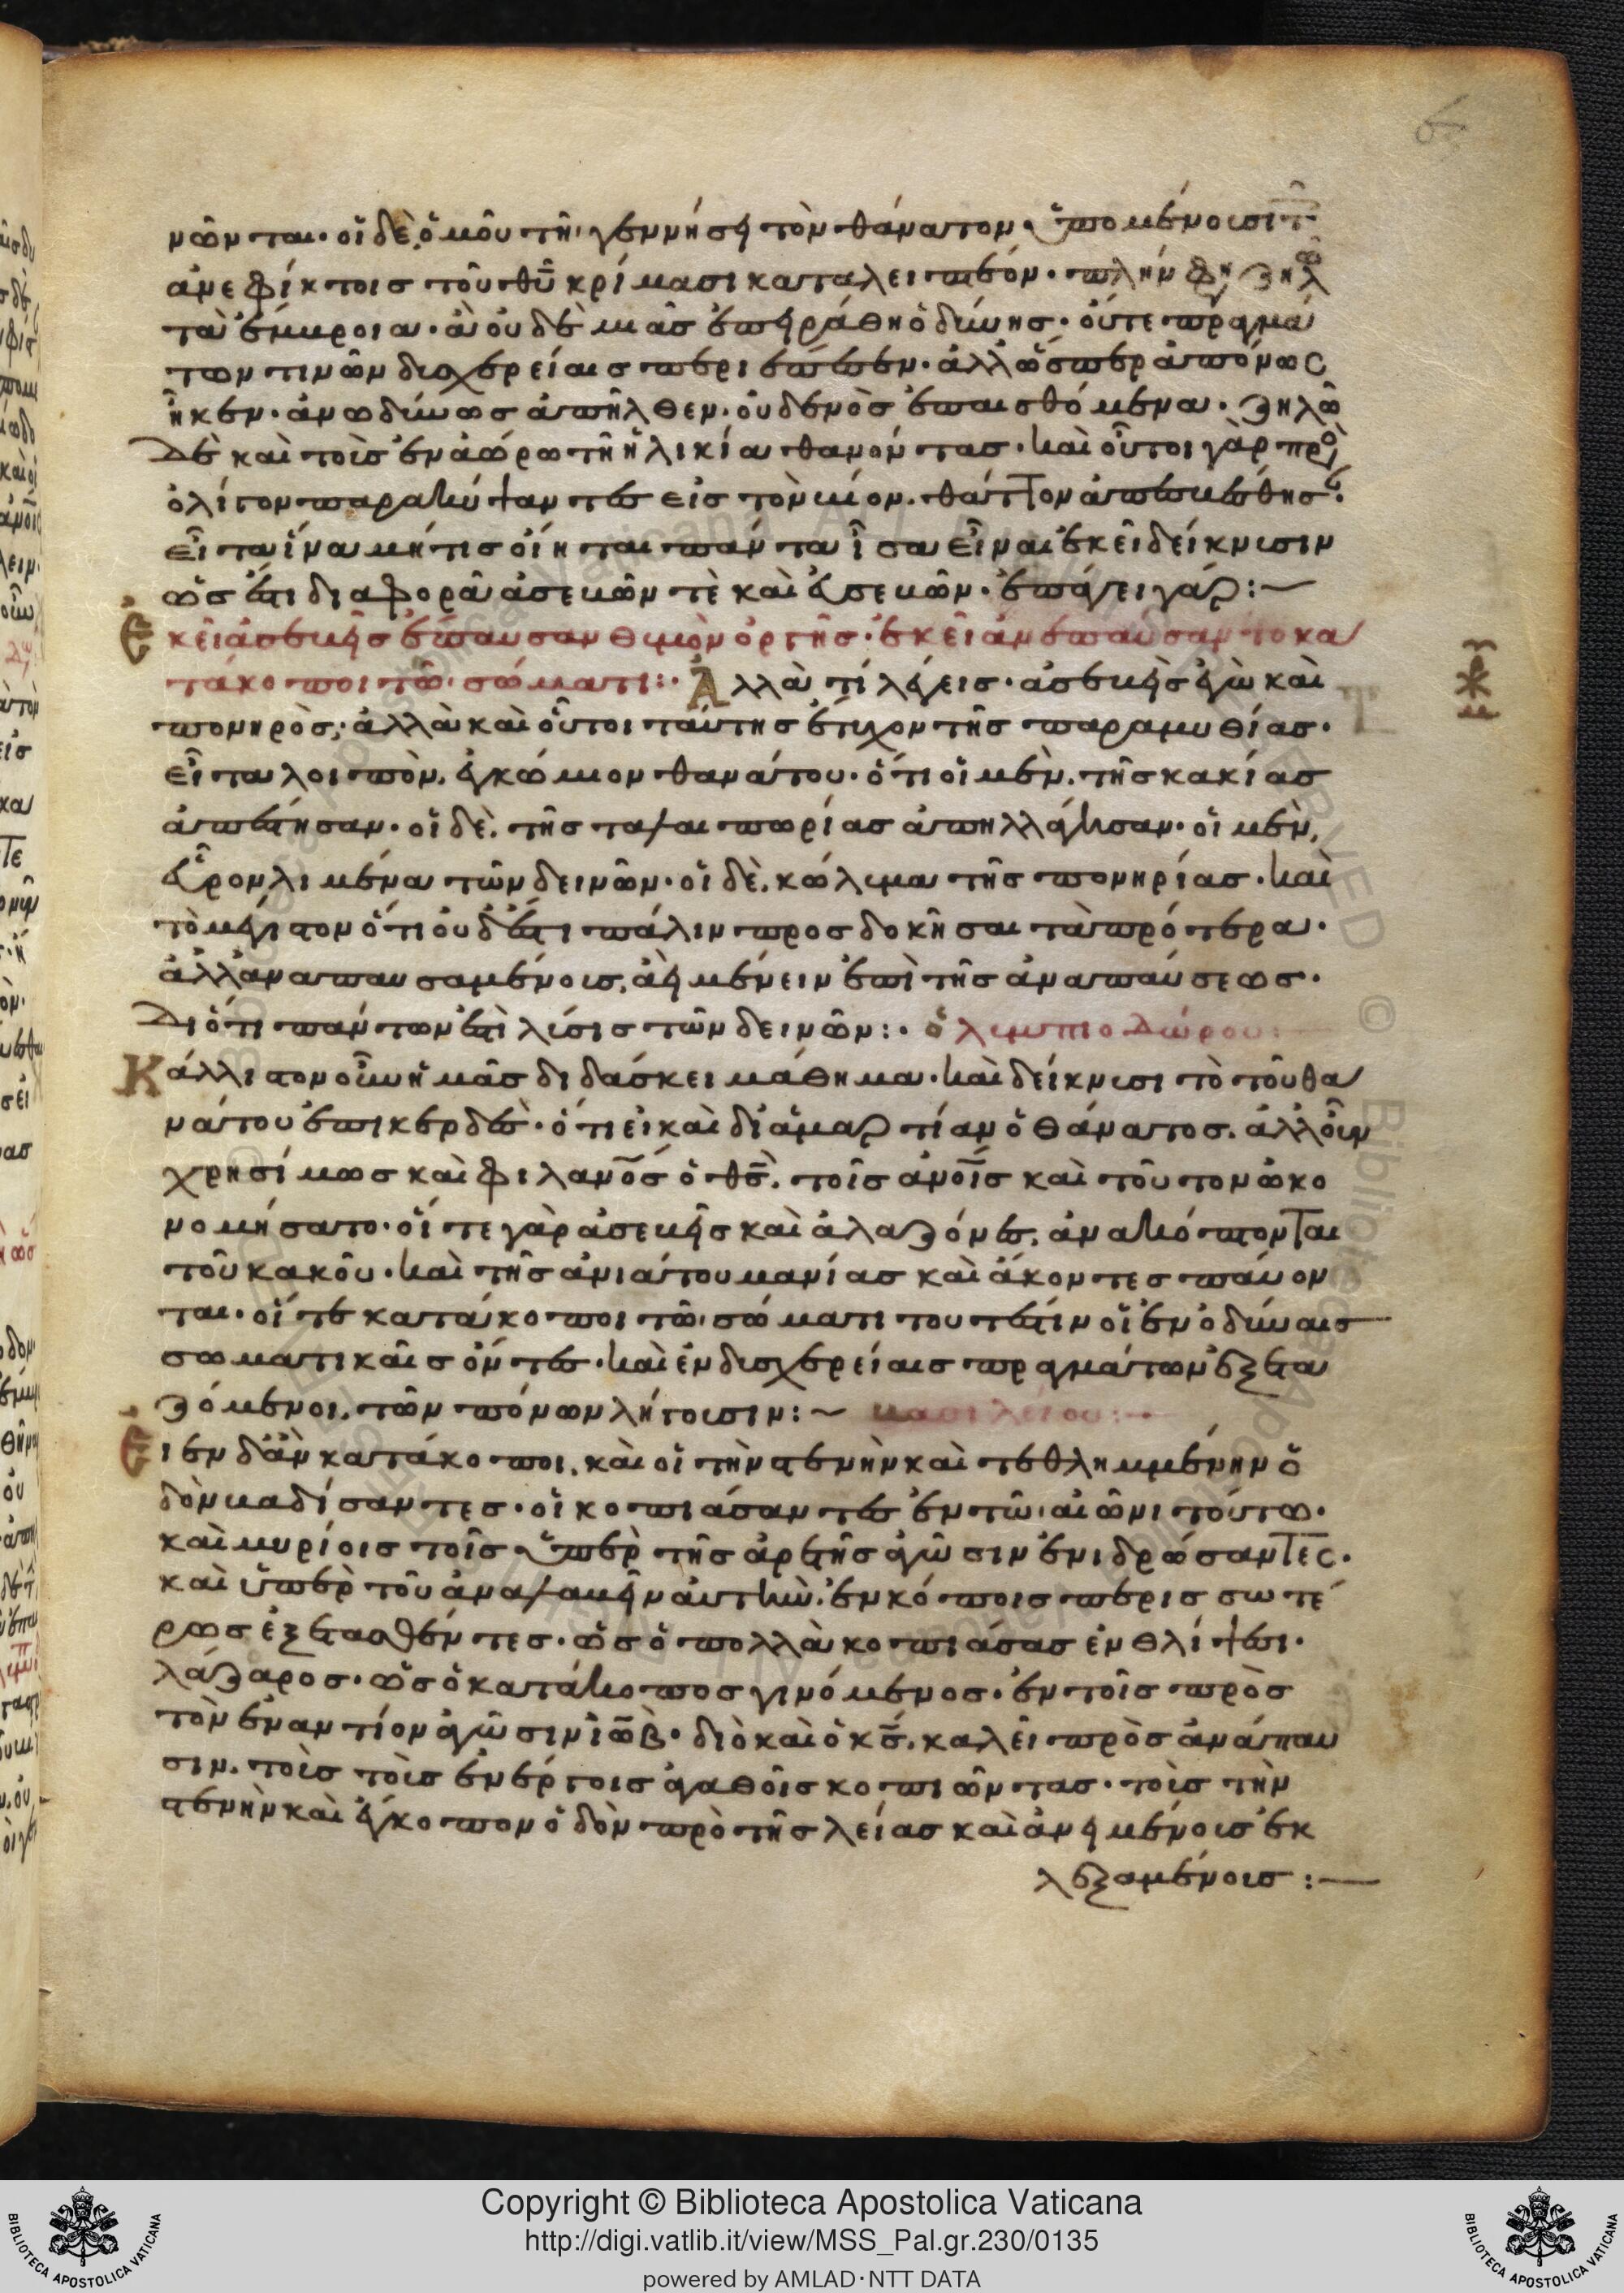 νῶνται· οἱ δὲ, ὁμοῦ τῆι γεννήσει τὸν θάνατον ὑπομένουσι· τ
ἀνεφίκτοις τοῦ θῦ κρίμασι καταλειπτέον· πλήν φη ζηλῶ
τὰ ἔμβροια· ἃ οὐδὲ μιᾶς ἐπειράθη ὀδύνης· οὔτε πραγμά
των τινῶν δυσχερείαις περιέπεσεν· ἀλλ' ὥσπερ ἀπόνως
ἧκεν· ἀνωδύνως ἀπῆλθεν· οὐδενὸς ἐπαισθόμενα· ζηλῶ
δὲ καὶ τοὺς ἐν ἀώρω τῆ ἡλικία θανόντας· καὶ οὗτοι γὰρ πρὸ
ὀλίγον παρακύψαντες εἰς τὸν βίον· θάττον ἀπεπέμφθησαν·
εἶτα ἵνα μήτις οἴηται πάντα ἶσα εἶναι ἐκεῖ δείκνυσιν
ὡς ἔστι διαφορὰ ἀσεβῶν τὲ καὶ εὐσεβῶν· ἐπάγει γάρ :~
Ἐκεῖ ἀσεβεῖς ἔπαυσαν θυμὸν ὀργῆς· ἐκεῖ ἀνεπαύσαντο κα
τάκοποι τῶ σώματι :· Ἀλλὰ τί λέγεις· ἀσεβὴς ἐγὼ καὶ
πονηρὸς; ἀλλὰ καὶ οὗτοι ταύτης ἔτυχον τῆς παραμυθίας·
εἶτα λοιπὸν, ἐγκώμιον θανάτου· ὅτι οἱ μὲν, τῆς κακίας
ἀπέστησαν· οἱ δὲ, τῆς ταλαιπωρίας ἀπηλλάγησαν· οἱ μὲν,
εὗρον λιμένα τῶν δεινῶν· οἱ δὲ, κώλυμα τῆς πονηρίας· καὶ
τὸ μέγιστον ὅτι οὐδ' ἔστι πάλιν προσδοκῆσαι τὰ πρότερα·
ἀλλ' ἀναπαυσαμένους, ἀεὶ μένειν ἐπὶ τῆς ἀναπαύσεως·
Διότι πάντων ἐστὶ λύσις τῶν δεινῶν :· ὀλυμπιοδώρου:
Κάλλιστον οὖν ἡμᾶς διδάσκει μάθημα· καὶ δείκνυσι τὸ τοῦ θα
νάτου ἐπικερδὲς· ὅτι εἰ καὶ δι' ἁμαρτίαν ὁ θάνατος, ἀλλ' οὖν
χρησίμως καὶ φιλανο̅ς ὁ θς̅, τοῖς ἀνοι̅ς καὶ τοῦτον ὠκο
νομήσατο· οἵ τε γὰρ ἀσεβεῖς καὶ ἀλαζόνες, ἀνακόπτονται
τοῦ κακοῦ· καὶ τῆς ἀνιάτου μανίας καὶ ἄκοντες παύον
ται· οἵ τε κατάκοποι τῶ σώματι τουτέστιν οἱ ἐν ὀδύναις
σωματικαῖς ὄντες· καὶ ἐν δυσχερείαις πραγμάτων ἐξετα
ζόμενοι, τῶν πόνων λήγουσιν :~ βασιλείου :~
Εἶεν δ' ἂν κατάκοποι, καὶ οἱ τὴν στενὴν καὶ τεθλημμένην ὁ
δὸν βαδίσαντες· οἱ κοπιάσαντες ἐν τῶ αἰῶνι τούτω·
καὶ μυρίοις τοῖς ὑπὲρ τῆς ἀρετῆς ἀγῶσιν ἐνιδρώσαντες·
καὶ ὑπὲρ τοῦ ἀναλαβεῖν αὐτὴν, ἐν κόποις περισσωτέ
ρως ἐξετασθέντες· ὡς ὁ πολλὰ κοπιάσας ἐν θλίψει·
λάζαρος· ὡς ὁ κατάκοπος γινόμενος· ἐν τοῖς πρὸς
τὸν ἐναντίον ἀγῶσιν ἰὼβ· διὸ καὶ ὁ κς̅, καλεῖ πρὸς ἀνάπαυ
σιν, τοὺς τοῖς ἐν ἔργοις ἀγαθοῖς κοπιῶντας· τοὺς τὴν
στενὴν καὶ ἔγκοπον ὁδὸν πρὸ τῆς λείας καὶ ἀνειμένοις ἐκ
λεξαμένους :—